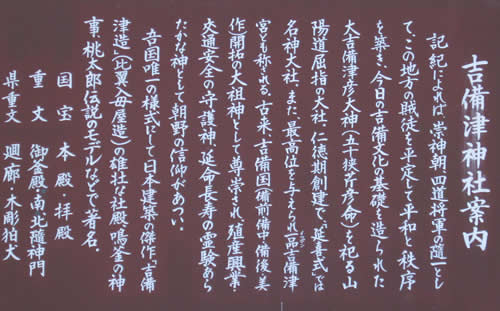 吉備津神社案内
記紀によれば、崇神朝、四道将軍の随一とし
て、この地方の賊徒を平定して平和と秩序
を築き、今日の吉備文化の基礎を造られた
大吉備津彦大神(五十狭芹彦命)を祀る山
陽道屈指の大社、仁徳期創建で、『延喜式』では
名神大社、また、最高位を与えられ『一品吉備津
宮』とも称れる。古来、吉備国(備前・備中・備後・美
作)開拓の大祖神として尊崇され、殖産興業
交通安全の守護神、延命長寿の霊験あら
たかな神として朝野の信仰があつい。
吾国唯一の様式にて日本建築の傑作「吉備
津造」(比翼入母屋造)の雄壮な社殿、鳴釜の神
事、桃太郎伝説のモデルなどで著名。
国宝 本殿 拝殿
重文 御釜殿・南北随神門
県重文 廻廊・木彫狛犬